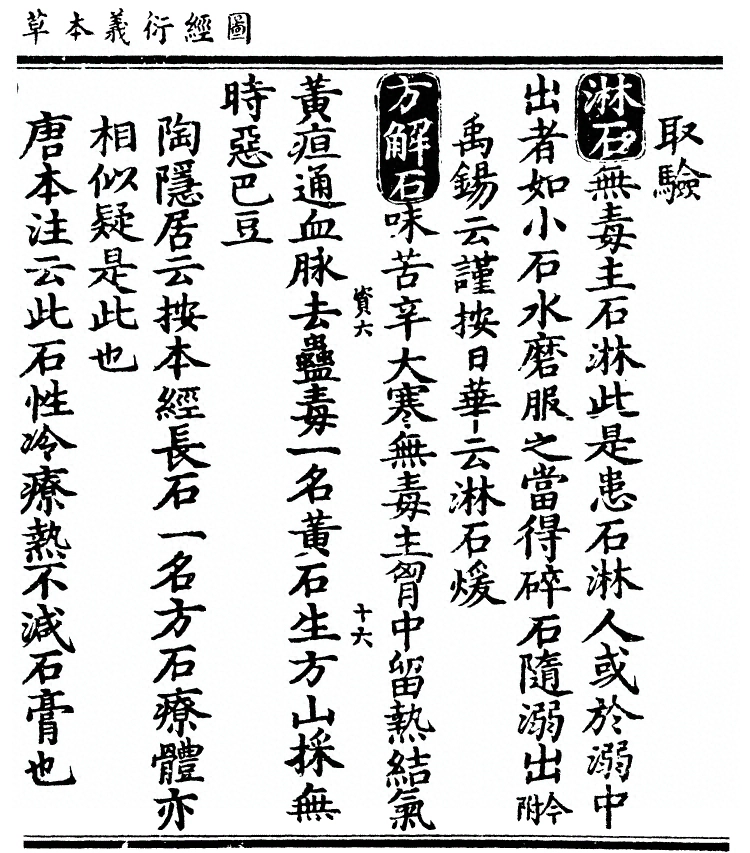 圖經衍義本草
取驗
淋石無毒主石淋此是患石淋人或於溺中
出者如小石水磨服之當得碎石隨溺出今附
禹錫云謹按日華云淋石煖
方解石味苦辛大寒無毒主胷中留熱結氣
賓六
十六
黃疸通血脉去蠱毒一名黃石生方山採無
時惡巴豆
陶隱居云按本經長石一名方石療體亦
相似疑是此也
唐本注云此石性冷療熱不減石膏也